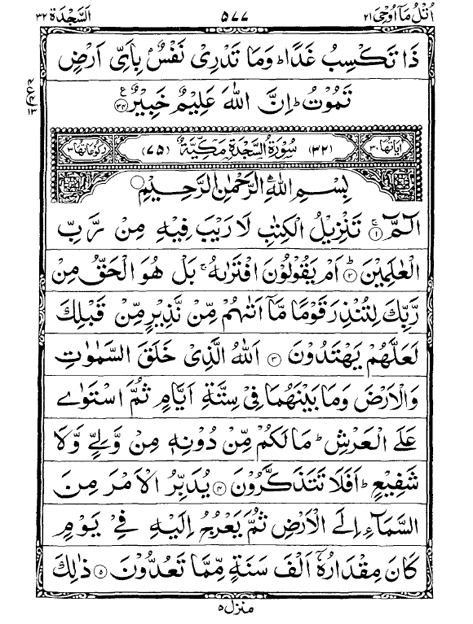 اُتۡلُ مَاۤ اُوۡحِیَ ٢١ ٥٧٧ اَلسَّجۡدَة ٣٢
ذَا تَكۡسِبُ غَدًا ؕ وَمَا تَدۡرِىۡ نَفۡسٌۢ بِاَىِّ اَرۡضٍ
تَمُوۡتُ ؕ اِنَّ اللّٰهَ عَلِيۡمٌ خَبِيۡرٌ ﴿٣٤﴾
اٰيَاتُهَا ٣٠ (٣٢) سُوۡرَةُ السَّجۡدَةِ مَكِّيَّةٌ (٧٥) رُكُوۡعَاتُهَا ٣
بِسۡمِ اللّٰهِ الرَّحۡمٰنِ الرَّحِيۡمِ
الٓمّٓ ﴿١﴾ تَنۡزِيۡلُ الۡكِتٰبِ لَا رَيۡبَ فِيۡهِ مِنۡ رَّبِّ
الۡعٰلَمِيۡنَ ﴿٢﴾ اَمۡ يَقُوۡلُوۡنَ افۡتَرٰٮهُ ۚ بَلۡ هُوَ الۡحَقُّ مِنۡ
رَّبِّكَ لِتُنۡذِرَ قَوۡمًا مَّاۤ اَتٰٮهُمۡ مِّنۡ نَّذِيۡرٍ مِّنۡ قَبۡلِكَ
لَعَلَّهُمۡ يَهۡتَدُوۡنَ ﴿٣﴾ اَللّٰهُ الَّذِىۡ خَلَقَ السَّمٰوٰتِ
وَالۡاَرۡضَ وَمَا بَيۡنَهُمَا فِىۡ سِتَّةِ اَيَّامٍ ثُمَّ اسۡتَوٰى
عَلَى الۡعَرۡشِ ؕ مَا لَكُمۡ مِّنۡ دُوۡنِهٖ مِنۡ وَّلِىٍّ وَّلَا
شَفِيۡعٍ ؕ اَفَلَا تَتَذَكَّرُوۡنَ ﴿٤﴾ يُدَبِّرُ الۡاَمۡرَ مِنَ
السَّمَآءِ اِلَى الۡاَرۡضِ ثُمَّ يَعۡرُجُ اِلَيۡهِ فِىۡ يَوۡمٍ
كَانَ مِقۡدَارُهٗۤ اَلۡفَ سَنَةٍ مِّمَّا تَعُدُّوۡنَ ﴿٥﴾ ذٰلِكَ
منزل ٥